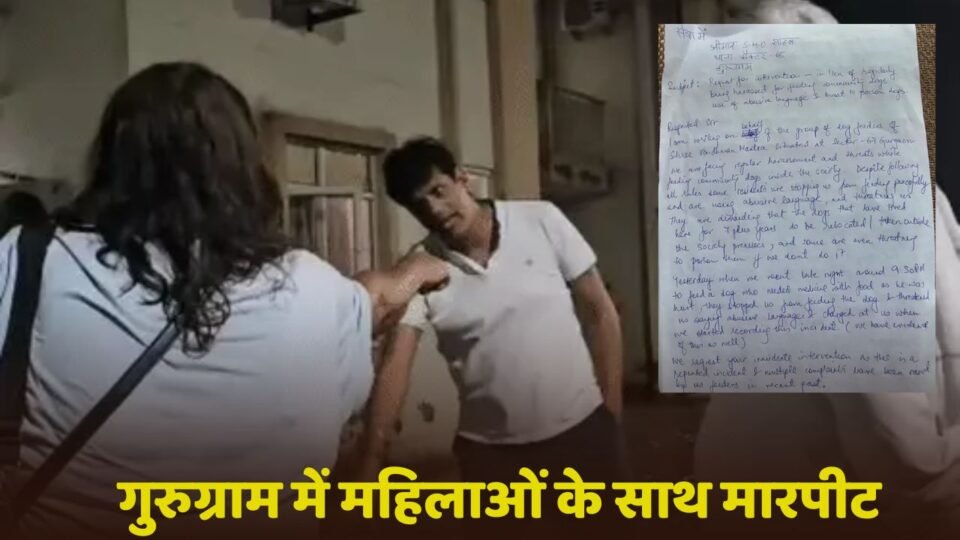 सेवा में
श्रीमान S.H.O साहब
थाना सैक्टर-65
गुरूग्राम
Subject: Request for intervention – in lieu of regularly
being harassed for feeding community dogs,
use of abusive language & threat to poison dogs.
Respected Sir
I am writing on behalf of the group of dog feeders of
Shree Vardhman Mantra situated at Sector-67 Gurgaon
We are facing regular harassment and threats while
feeding community dogs inside the society. Despite following
all rules some residents are stopping us from feeding peacefully
and are using abusive language, and threatening us
They are demanding that the dogs that have lived
here for 7 plus years to be relocated / taken outside
the society premises, and some are even threatening
to poison them if we dont do it
Yesterday when we went late night around 9.30PM
to feed a dog who needs medicine with food as he was
hurt, they stopped us from feeding the dog & threatened
us saying abusive language & charged at us when
we started recording this incident (we have evidence
of this as well)
We request your immediate intervention as this is a
repeated incident & multiple complaints have been
by us feeders in recent past.
गुरुग्राम में महिलाओं के साथ मारपीट